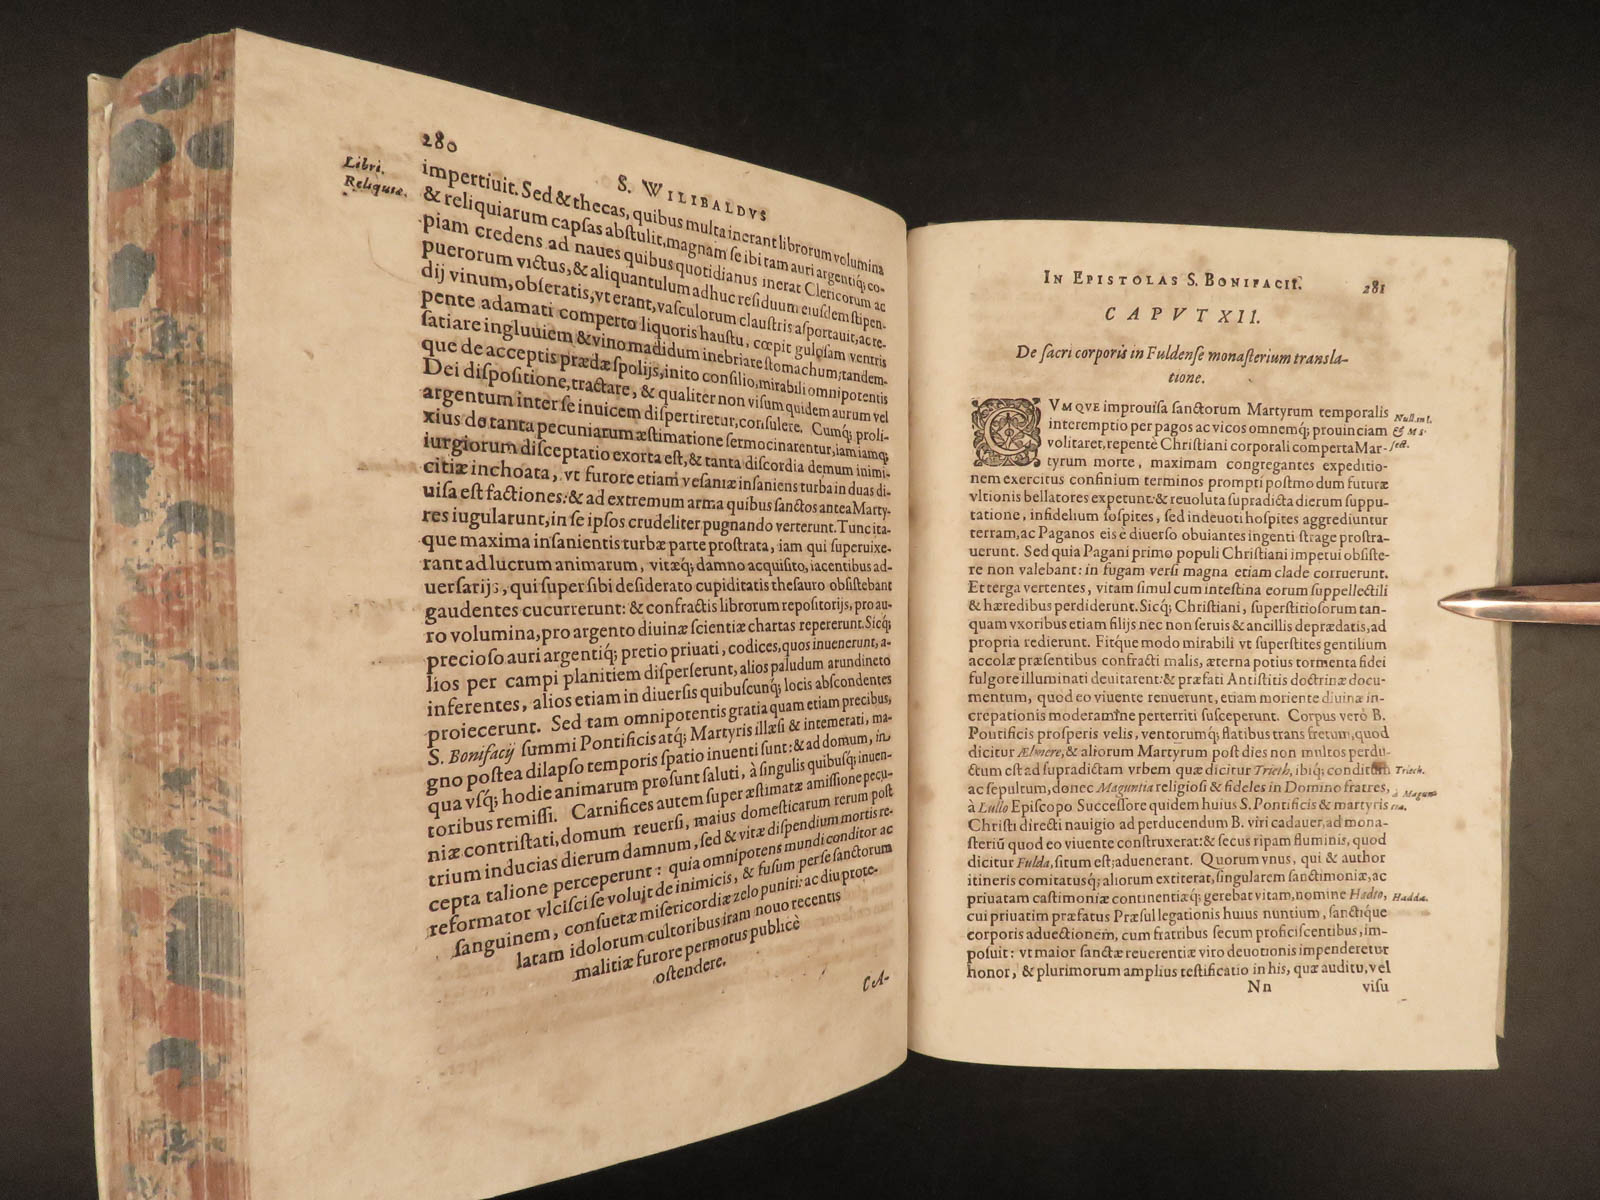 280
S. WILIBALDVS
Libri.
Reliquiæ.
impertiuit. Sed & thecas, quibus multa inerant librorum volumina
& reliquiarum capſas abſtulit, magnam ſe ibi tam auri argentiq́; co-
piam credens ad naues quibus quotidianus inerat Clericorum ac
puerorum victus, & aliquantulum adhuc reſiduum eiuſdem ſtipen-
dij vinum, obſeratis, vt erant, vaſculorum clauſtris aſportauit, ac re-
pente adamati comperto liquoris hauſtu, cœpit guloſam ventris
ſatiare ingluuiem & vino madidum inebriare ſtomachum; tandem-
que de acceptis prædæ ſpolijs, inito conſilio, mirabili omnipotentis
Dei diſpoſitione, tractare, & qualiter non viſum quidem aurum vel
argentum inter ſe inuicem diſpertiretur, conſulere. Cumq́; proli-
xius de tanta pecuniarum æſtimatione ſermocinarentur, iam iamq́;
iurgiorum diſceptatio exorta eſt, & tanta diſcordia demum inimi-
citiæ inchoata, vt furore etiam veſaniæ inſaniens turba in duas di-
uiſa eſt factiones: & ad extremum arma quibus ſanctos antea Marty-
res iugularunt, in ſe ipſos crudeliter pugnando verterunt. Tunc ita-
que maxima inſanientis turbæ parte proſtrata, iam qui ſuperuixe-
rant ad lucrum animarum, vitæq́; damno acquiſito, iacentibus ad-
uerſarijs, qui ſuper ſibi deſiderato cupiditatis theſauro obſtſtebant
gaudentes cucurrerunt: & confractis librorum repoſitorijs, pro au-
ro volumina, pro argento diuinæ ſcientiæ chartas repererunt. Sicq́;
precioſo auri argentiq́; pretio priuati, codices, quos inuenerunt, a-
lios per campi planitiem diſperſerunt, alios paludum arundineto
inferentes, alios etiam in diuerſis quibuſcunq́; locis abſcondentes
proiecerunt. Sed tam omnipotentis gratia quam etiam precibus,
S. Bonifacij ſummi Pontificis atq́; Martyris illæſi & intemerati, ma-
gno poſtea dilapſo temporis ſpatio inuenti ſunt: & ad domum, in
qua vſq́; hodie animarum proſunt ſaluti, à ſingulis quibuſq́; inuen-
toribus remiſſi. Carnifices autem ſuper æſtimatæ amiſſione pecu-
niæ contriſtati, domum reuerſi, maius domeſticarum rerum poſt
trium inducias dierum damnum, ſed & vitæ diſpendium mortis re-
cepta talione perceperunt: quia omnipotens mundi conditor ac
reformator vlciſci ſe voluit de inimicis, & fuſum per ſe ſanctorum
ſanguinem, conſuetæ miſericordiæ zelo puniri: ac diu prote-
latam idolorum cultoribus iram nouo recentis
malitiæ furore permotus publicè
oſtendere.
CA-
IN EPISTOLAS S. BONIFACII. 281
CAPVT XII.
De ſacri corporis in Fuldenſe monaſterium transla-
tione.
CVMQVE improuiſa ſanctorum Martyrum temporalis
interemptio per pagos ac vicos omnemq́; prouinciam
volitaret, repentè Chriſtiani corporali comperta Mar-
tyrum morte, maximam congregantes expeditio-
nem exercitus confinium terminos prompti poſtmodum futuræ
vltionis bellatores expetunt: & reuoluta ſupradicta dierum ſuppu-
tatione, infidelium ſoſpites, ſed indeuoti hoſpites aggrediuntur
terram, ac Paganos eis è diuerſo obuiantes ingenti ſtrage proſtra-
uerunt. Sed quia Pagani primo populi Chriſtiani impetui obſiſte-
re non valebant: in fugam verſi magna etiam clade corruerunt.
Et terga vertentes, vitam ſimul cum inteſtina eorum ſuppellectili
& hæredibus perdiderunt. Sicq́; Chriſtiani, ſuperſtitioſorum tan-
quam vxoribus etiam filijs nec non ſeruis & ancillis deprædatis, ad
propria redierunt. Fitque modo mirabili vt ſuperſtites gentilium
accolæ præſentibus confracti malis, æterna potius tormenta fidei
fulgore illuminati deuitarent: & præfati Antiſtitis doctrinæ docu-
mentum, quod eo viuente renuerunt, etiam moriente diuinæ in-
crepationis moderamine perterriti ſuſceperunt. Corpus verò B.
Pontificis proſperis velis, ventorumq́; flatibus trans fretum, quod
dicitur Ælmere, & aliorum Martyrum poſt dies non multos perdu-
ctum eſt ad ſupradictam vrbem quæ dicitur Trieth, ibiq́; conditum
ac ſepultum, donec Maguntia religioſi & fideles in Domino fratres,
à Lullo Epiſcopo Succeſſore quidem huius S. Pontificis & martyris
Chriſti directi nauigio ad perducendum B. viri cadauer, ad mona-
ſteriū quod eo viuente conſtruxerat: & ſecus ripam fluminis, quod
dicitur Fulda, ſitum eſt; aduenerant. Quorum vnus, qui & author
itineris comitatusq́; aliorum extiterat, ſingularem ſanctimoniæ, ac
priuatam caſtimoniæ continentiæq́; gerebat vitam, nomine Hadto,
cui priuatim præfatus Præſul legationis huius nuntium, ſanctique
corporis aduectionem, cum fratribus ſecum proficiſcentibus, im-
poſuit: vt maior ſanctæ reuerentiæ viro deuotionis impenderetur
honor, & plurimorum amplius teſtificatio in his, quæ auditu, vel
Nn viſu
Null. int.
& Ms.
ſect.
Triech.
à Magun
tia.
Hadda.